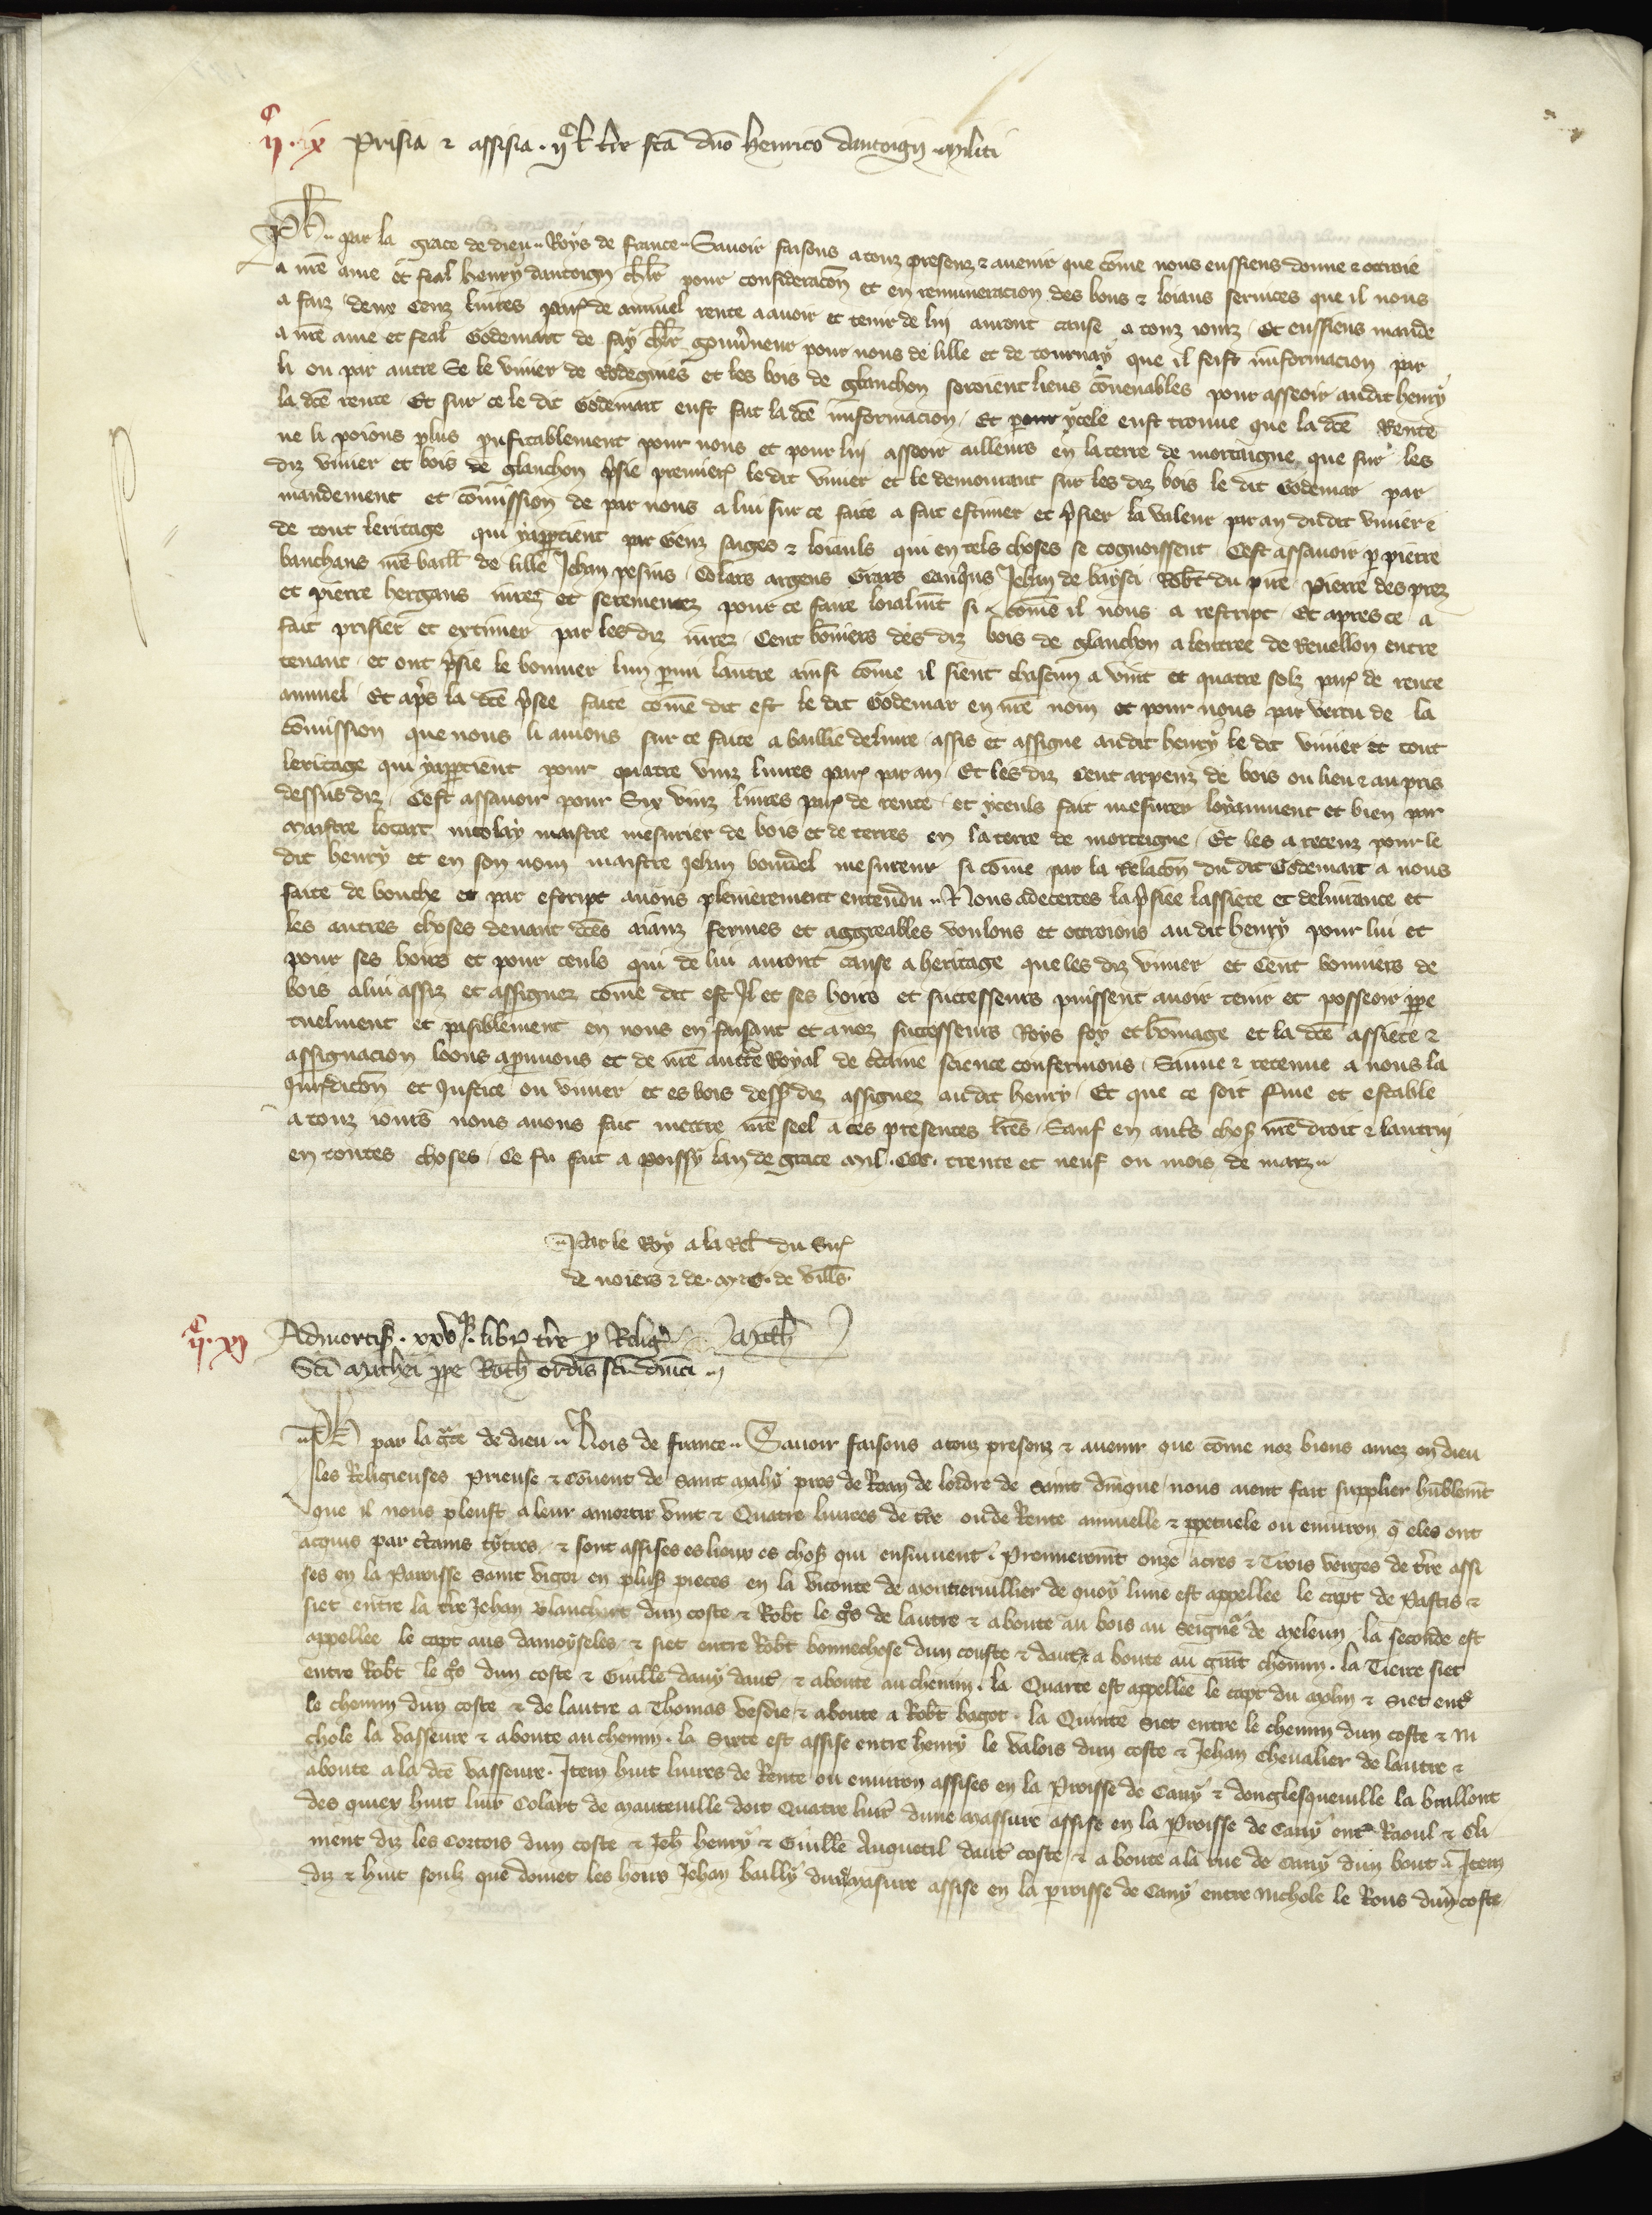 IIc IX Prisia ⁊ assisia IIc l. tr̄e fc̄a dn̄o henrico dantoign militi
Ph. par la grace de dieu Roys de france Savoir faisons a touz presenz ⁊ avenir que cōme nous eussiens donne ⁊ ottroie
a nr̄e ame et feal henry dantoign chlr̄ pour consideracōn et en remuneracion des bons ⁊ loiaus services que il nous
a faiz deux cenz livres par̄ de annuel rente a avoir et tenir de lui auront cause a touz iourz Et eussiens mande
a nr̄e ame et feal Godemart de fay chlr̄ gouv̄neur pour nous de lille et de tournay que il feist informacion par
li ou par autre Se le vivier de Rodegnies et les bois de glanchon seroient liens cōvenables pour asseoir audit henry
la dcē rente Et sur ce le dit Godemart eust fait la dcē informacion Et pour ycele eust trouve que la dcē Rente
ne li poions plus prufitablement pour nous et pour lui asseoir ailleurs en la terre de mortaigne que sur les
diz vivier et bois de glanchon prisie premier̄ le dit vivier et le demourant sur les diz bois le dit Godemar par
mandement et cōmission de par nous a lui sur ce faite a fait estimer et prisier la valeur par an dudit vivier ⁊
de tout leritage qui yappartient par Genz saiges ⁊ loiauls qui en tels choses se cognoissent Cest assavoir p pierre
banchans nr̄e baill de lille Jehan Colars argens Grars Jehan de Robt̄ du pierre des prez
et pierre bergans iurez et sermentez pour ce faire loialmēt si cōme il nous a rescript Et apres ce a
fait prisier et extimer par les diz iurez Cent bōniers des diz bois de glanchon a lentree de Revellon entre
tenant et ont prisie le bonnier lun parmi lautre ainsi cōme il sient chascun a vint et quatre solz par̄ de rente
annuel Et ap̄s la dcē p̄see faite cōme dit est le dit Godemar en nr̄e nom et pour nous par vertu de la
cōmission que nous li avions sur ce faite a baillie delivre assis et assigne audit henry le dit vivier et tout
leritage qui yapartient pour quatre vinz livres par̄ par an Et les diz Cent arpenz de bois ou lieu ⁊ au pris
dessus diz Cest assavoir pour Six vinz livres par̄ de rente et yceuls fait mesurer loyaument et bien par
maistre locart nicolay maistre mesurier de bois et de terres en la terre de mortaigne Et les a receuz pour le
dit henry et en son nom maistre Jehan bourdel mesureur si cōme par la Relacōn du dit Godemart a nous
faite de bouche et par escript avons plenierement entendu Nous adecertes la p̄siee lassiete et delivrance et
les autres choses devant dcēs aianz fermes et aggreables voulons et ottroions au dit henry pour lui et
pour ses hoirs et pour ceuls qui de lui auront cause a heritage que les diz vivier et Cent bonniers de
bois a lui assiz et assignez cōme dit est Il et ses hoirs et successeurs puissent avoir tenir et possēoir ppe
tuelment et paisiblement en nous en faisant et a noz successeurs Roys foy et hōmage et la dcē assiete ⁊
assignacion loons aprouvons et de nr̄e auctē Royal de c̄taine science confermons Sauve ⁊ retenue a nous la
Jurisdicōn et Justice ou vivier et es bois dess diz assignez audit henry Et que ce soit ferme et estable
a touz iours nous avons fait mettre nr̄e seel a ces presentes lr̄es Sauf en aut̄s choses nr̄e droit ⁊ lautrui
en toutes choses Ce fu fait a poissy lan de grace mil CCC trente et neuf ou mois de marz
Par le Roy a la Rel du Sir̄
de noiers ⁊ de M. G. de vill̄s
IIc XI Admortis. xxiiij libr tr̄e p Relig
Sc̄i Mathei ppe Roth ordīs sc̄i dn̄ici
Ph par la gr̄ce de dieu Rois de france Savoir faisons a touz presenz ⁊ avenir que cōme noz biens amez en dieu
les Religieuses Prieuse ⁊ Couvent de saint mahy pres de Roan de lordre de saint dn̄ique nous aient fait supplier hūblemt̄
que il nous pleust a leur amortir vint ⁊ Quatre livres de tr̄e ou de Rente annuelle ⁊ ppetuele ou environ q̄ eles ont
acquis par c̄tains tytres ⁊ sont assises es lieux es chos̄ qui ensuiuent Premieremt̄ onze acres ⁊ Trois verges de tr̄e assi
ses en la Paroisse saint vigor en plus̄ pieces en la viconte de moutiervillier de quoy lune est appellee le capt de Pastis ⁊
siet entre la tr̄e Jehan blanchart dun coste ⁊ Robt̄ le g̊s de lautre ⁊ aboute au bois au seigneͬ de meleun la seconde est
appellee le capt aus damoyseles ⁊ siet entre Robt̄ bonnechose dun couste ⁊ daut̄ aboute au grāt chemin la Tierce siet
entre Robt̄ le g̊s dun coste ⁊ Guill̄e dany daut̄ ⁊ aboute au chemin la Quarte est appellee le capt du molin ⁊ siet ent̄
le chemin dun coste ⁊ de lautre a Thomas vesdie ⁊ aboute a Robt̄ bagot la Quinte siet entre le chemin dun coste ⁊ ni
chole la vasseure ⁊ aboute au chemin la Sixte est assise entre henry le valois dun coste ⁊ Jehan Chevalier de lautre ⁊
aboute a la dcē vasseure Item huit livres de Rente ou environ assises en la Proisse de Cany ⁊ donglesqueville la braillont
des quiex huit livr̄ Colart de mauteville doit Quatre livr̄ dune massure assise en la Proisse de Cany ent̄ Raoul ⁊ Cli
ment diz les Cortois dun coste ⁊ Jeh henry ⁊ Guill̄e Anquetil daut̄ coste ⁊ aboute a la rue de Cany dun bout Item
diz ⁊ huit soulz que doivet les hoirs Jehan bailly dune masure assise en la proisse de Cany entre nichole le Rous dun coste